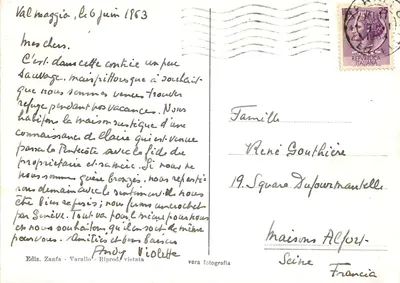 Valmaggia, le 6 juin 1963
Mes chers.
C'est dans cette contrée un peu
sauvage, mais pittoresque à souhait
que nous sommes venus trouver
refuge pendant nos vacances. Nous
habitons la maison rustique d'une
connaissance de Claire qui est venue
passer la Pentecôte avec la fille du
propriétaire et sa nièce. Si nous ne
nous sommes guère bronzés, nous repartirons
demain avec le sentiment de nous
être bien reposés; nous ferons un crochet
par Genève. Tout va pour le mieux pour nous
et nous souhaitons qu'il en soit de même
pour vous. Amitiés et bons baisers
Andy Violette
Ediz. Zanfa - Varallo - Riprod. vietata
vera fotografia
REPUBBLICA
ITALIANA
Famille
René Gouthière
19, Square Dufourmantelle
Maisons Alfort -
Seine
Francia